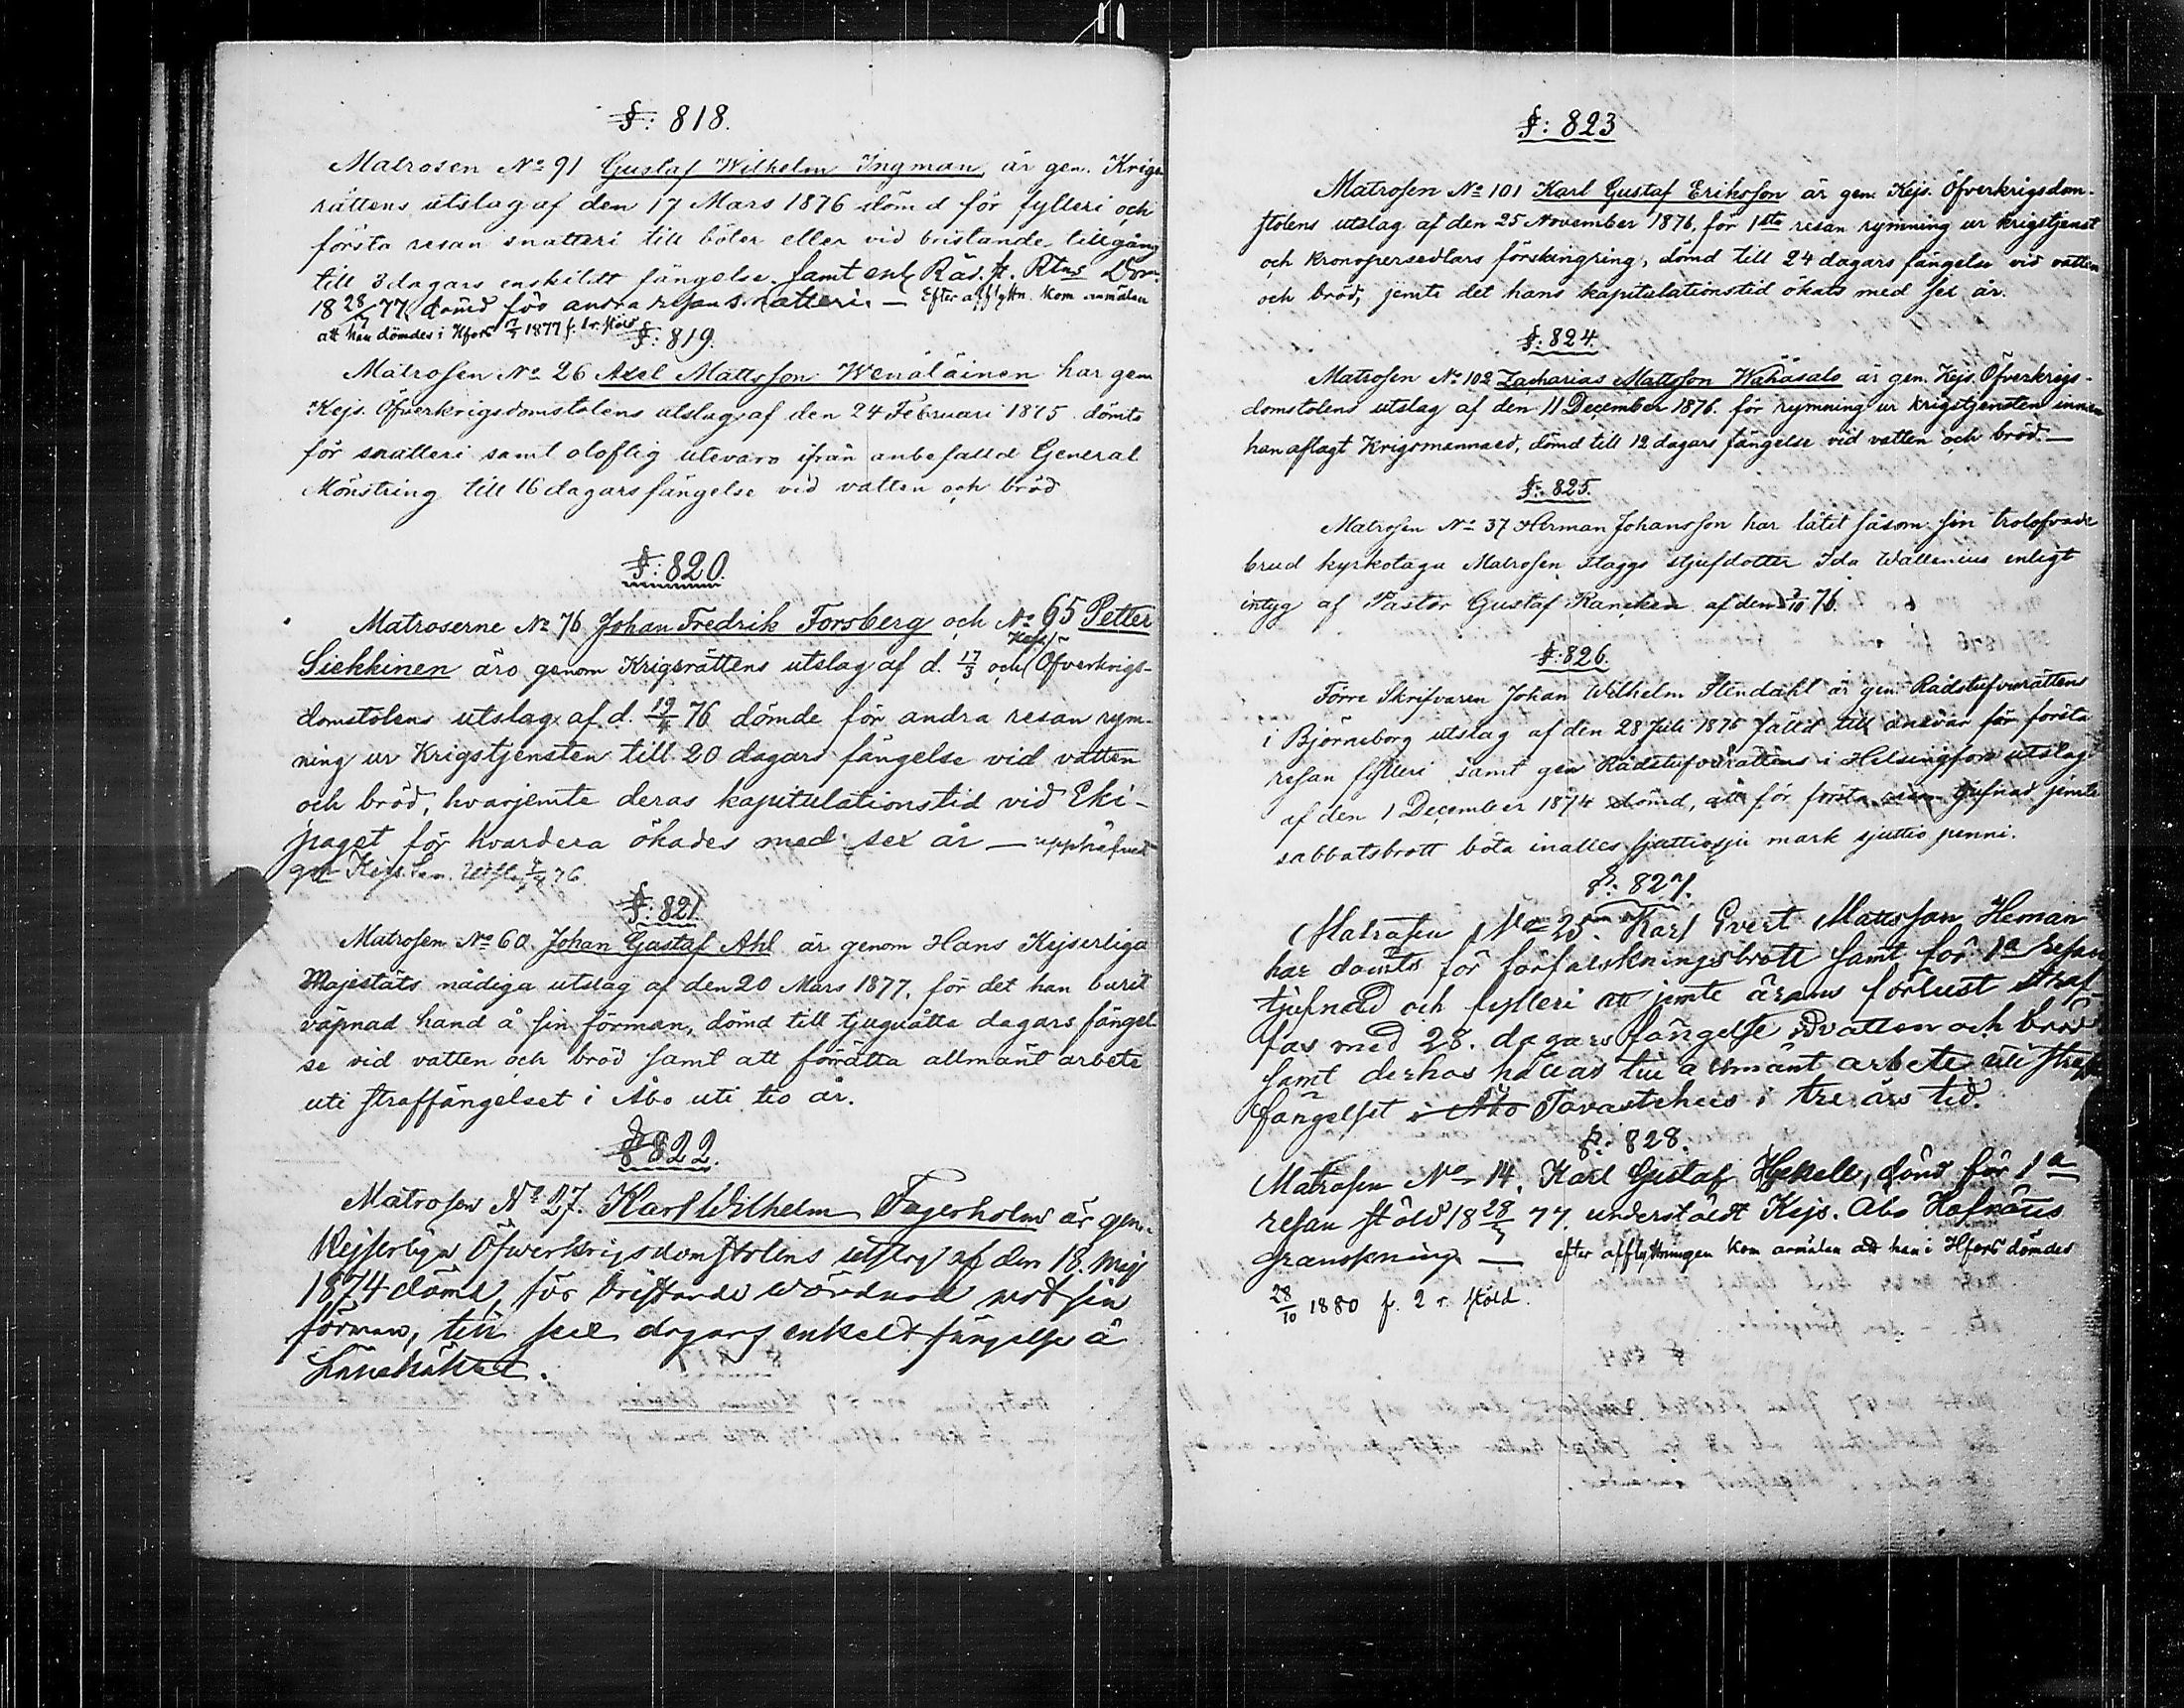 §: 818.
Matrosen No 91 Gustaf Wilhelm Ingman, är gen. Krigs
rättens utslag af den 17 Mars 1876 dömd för fylleri och
första resan snatteri till böter eller vid bristande tillgång
till 3 dagars enskildt fängelse samt enl. Råd. st. Rtns Dom
18 28/7 77 dömd för andra resan snatteri. — Efter afflyttn. kom anmälan
att han dömdes i Hfors 1877 f. 1 r. stöld
§: 819.
Matrosen No 26 Axel Mattsson Wenäläinen har gem
Kejs. Öfverkrigsdomstolens utslag af den 24 Februari 1875 dömts
för snatteri samt oloflig utevaro ifrån anbefalld General
Mönstring till 16 dagars fängelse vid vatten och bröd
§: 820.
Matroserne No 76 Johan Fredrik Forsberg och No 65 Petter
Siekkinen äro genom Krigsrättens utslag af d. 17/3 och Kejs. Öfverkrigs-
domstolens utslag af d. 19/4 76 dömde för andra resan rym-
ning ur Krigstjensten till 20 dagars fängelse vid vatten
och bröd, hvarjemte deras kapitulationstid vid Eki-
paget för hvardera ökades med sex år — upphäfvet
gm Kejs. Sen. Utsl. 76.
§: 821.
Matrosen No 60. Johan Gustaf Ahl är genom Hans Kejserliga
Majestäts nådiga utslag af den 20 Mars 1877, för det han burit
väpnad hand å sin förman, dömd till tjuguåtta dagars fängel
se vid vatten och bröd samt att förrätta allmänt arbete
uti straffängelset i Åbo uti tio år.
§ 822.
Matrosen No 27. Karl Wilhelm Fagerholm är gen.
Kejserliga Öfwerkrigsdomstolens utslag af den 18. Maj
1874 dömd, för bristande wördnad mot sin
förman, till sex dagars enkelt fängelse å
Länehäktet.
§: 823
Matrosen No 101 Karl Gustaf Eriksson är gen. Kejs. Öfverkrigsdom-
stolens utslag af den 25 November 1876, för 1sta resan rymning ur krigstjenst
och kronopersedlars förskingring, dömd till 24 dagars fängelse vid vatten
och bröd, jemte det hans kapitulationstid ökats med sex år.
§: 824.
Matrosen No 102 Zacharias Mattsson Wähäsalo är gen. Kejs. Öfverkrigs-
domstolens utslag af den 11 December 1876. för rymning ur krigstjensten innan
han aflagt Krigsmannaed, dömd till 12 dagars fängelse vid vatten och bröd. —
§: 825.
Matrosen No 37 Herman Johansson har låtit såsom sin trolofvade
brud kyrkotaga Matrosen Flaggs stjufdotter Ida Wallenius enligt
intyg af Pastor Gustaf Rancken af den 3/10 76.
§: 826.
Förre Skrifvaren Johan Wilhelm Stendahl är gen. Rådstufvurättens
i Björneborg utslag af den 28 Juli 1875 fälld till ansvar för första
resan fylleri samt gen Rådstufvurättens i Helsingfors utslag
af den 1 December 1874 dömd, att för första resan tjufnad jemte
sabbatsbrott böta inalles sjuttiosju mark sjuttio penni.
§: 827.
Matrosen No 25 Karl Evert Mattsson Heman
har dömts för förfalskningsbrott samt för 1a resan
tjufnad och fylleri att jemte ärans förlust straf
fas med 28. dagars fängelse vid vatten och bröd
samt derhos hållas till allmänt arbete uti straff
fängelset i Åbo Tavastehus i tre års tid.
§: 828.
Matrosen No 14. Karl Gustaf Hekell, dömd för 1a
resan stöld 18 28/5 77. understäldt Kejs. Åbo Hofrätts
granskning — efter afflyttningen kom anmälan att han i Hfors dömdes
28/10 1880 f. 2 r. stöld.